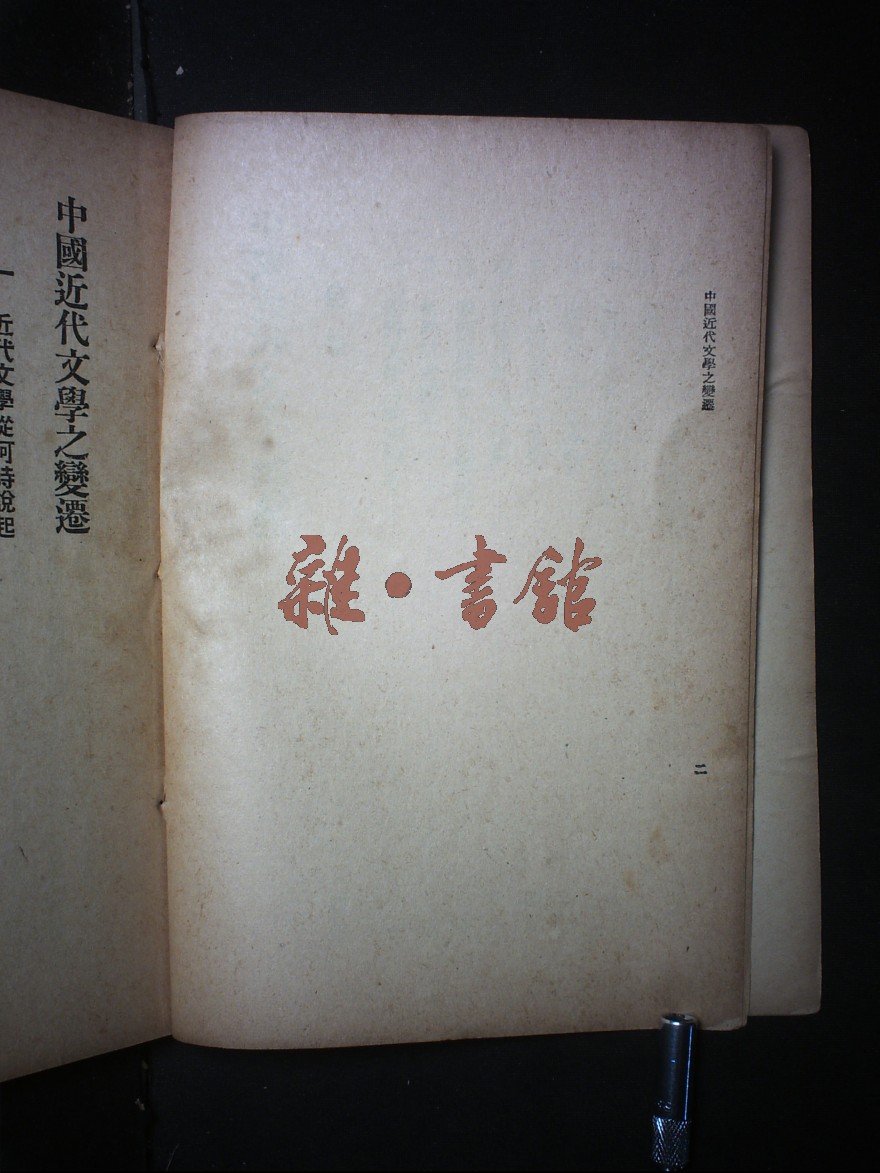 中國近代文學之變遷
二
雜·書館
中國近代文學之變遷
一 近代文學從何時說起